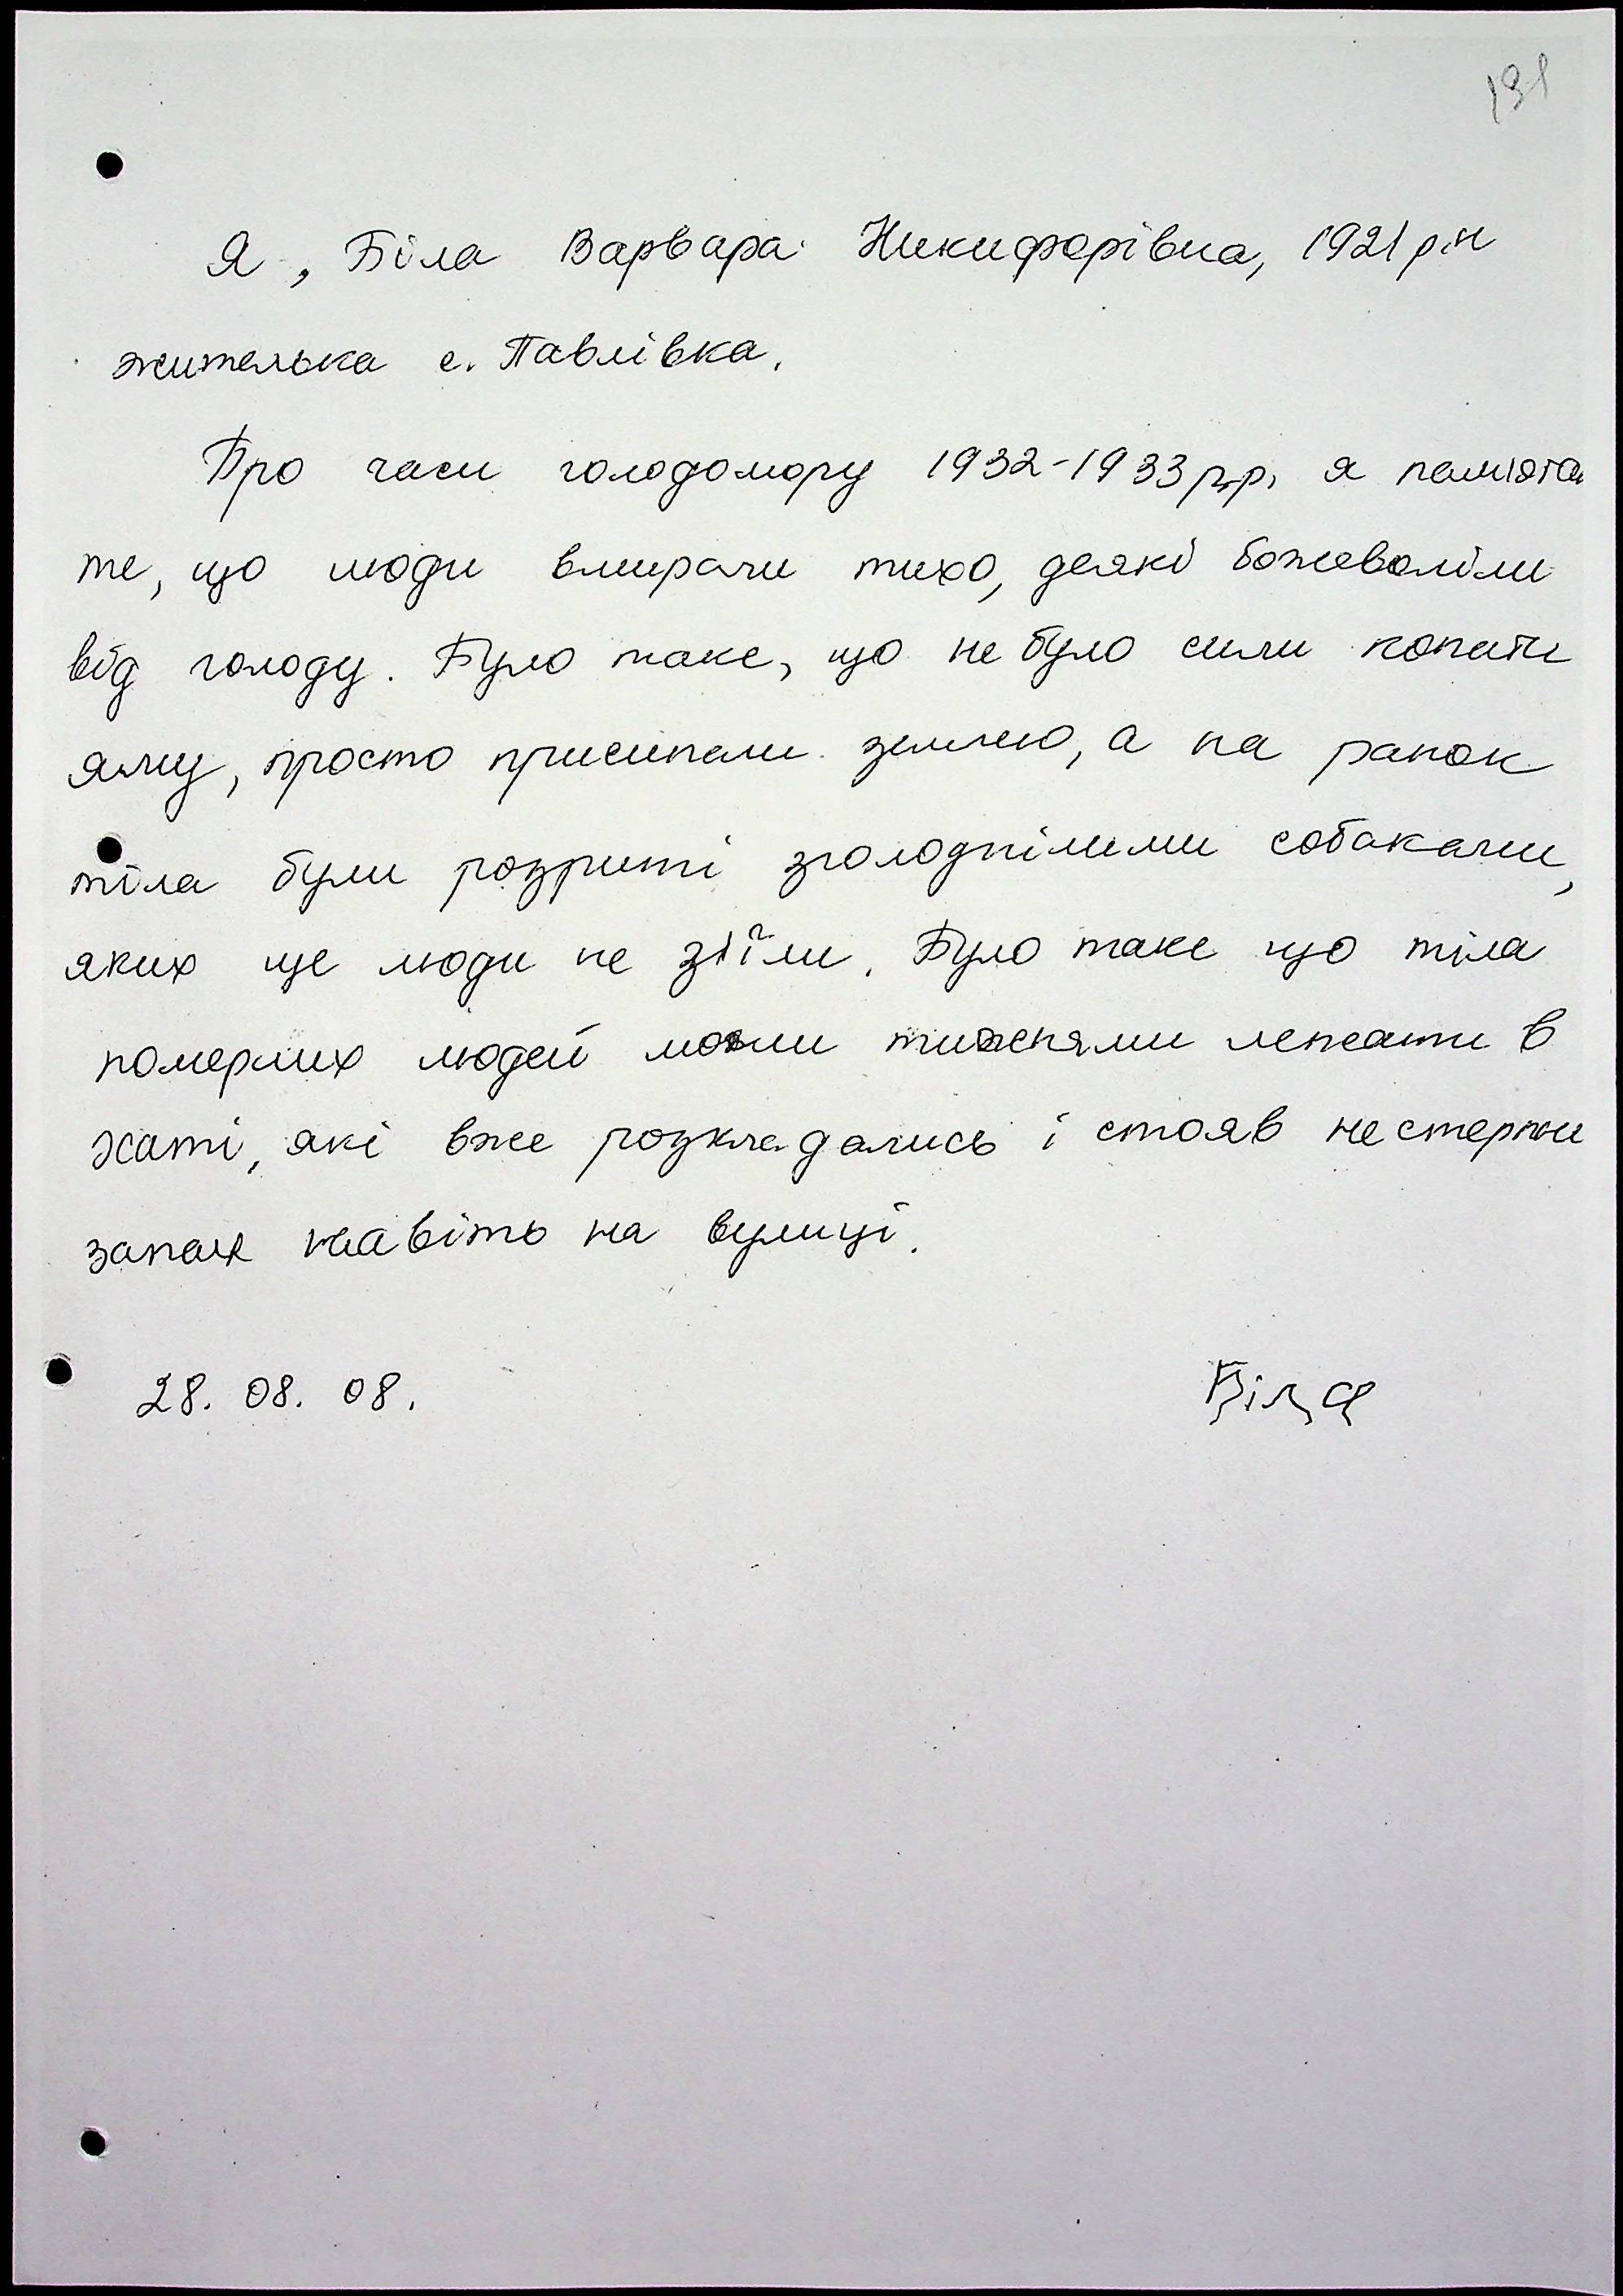 131
Я, Біла Варвара Никифорівна, 1921 р.н
жителька с. Павлівка.
Про часи голодомору 1932-1933 р.р. я пам'ята
те, що люди вмирали тихо, деякі божеволіли
від голоду. Було таке, що не було сили копати
яму, просто присипали землею, а на ранок
тіла були розриті зголоднілими собаками,
яких ще люди не з'їли. Було таке що тіла
померлих людей могли тижнями лежати в
хаті, які вже розкладались і стояв нестерпни
запах навіть на вулиці.
28. 08. 08.
Біла